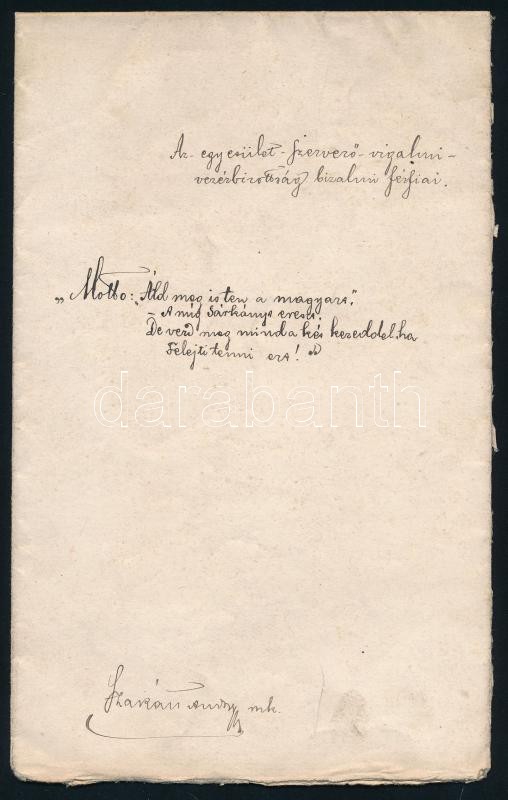 Az - egyesület - Szervező - vigalmi -
vezérbizottság bizalmi férfiai.
„Motto: „Áld meg isten a magyart,"
- A míg Sárkányt ereszt.
De verd meg mind a két kezeddel, ha
Felejti tenni ezt!"
darabanth
www.darabanth.com
Szakáts mk.